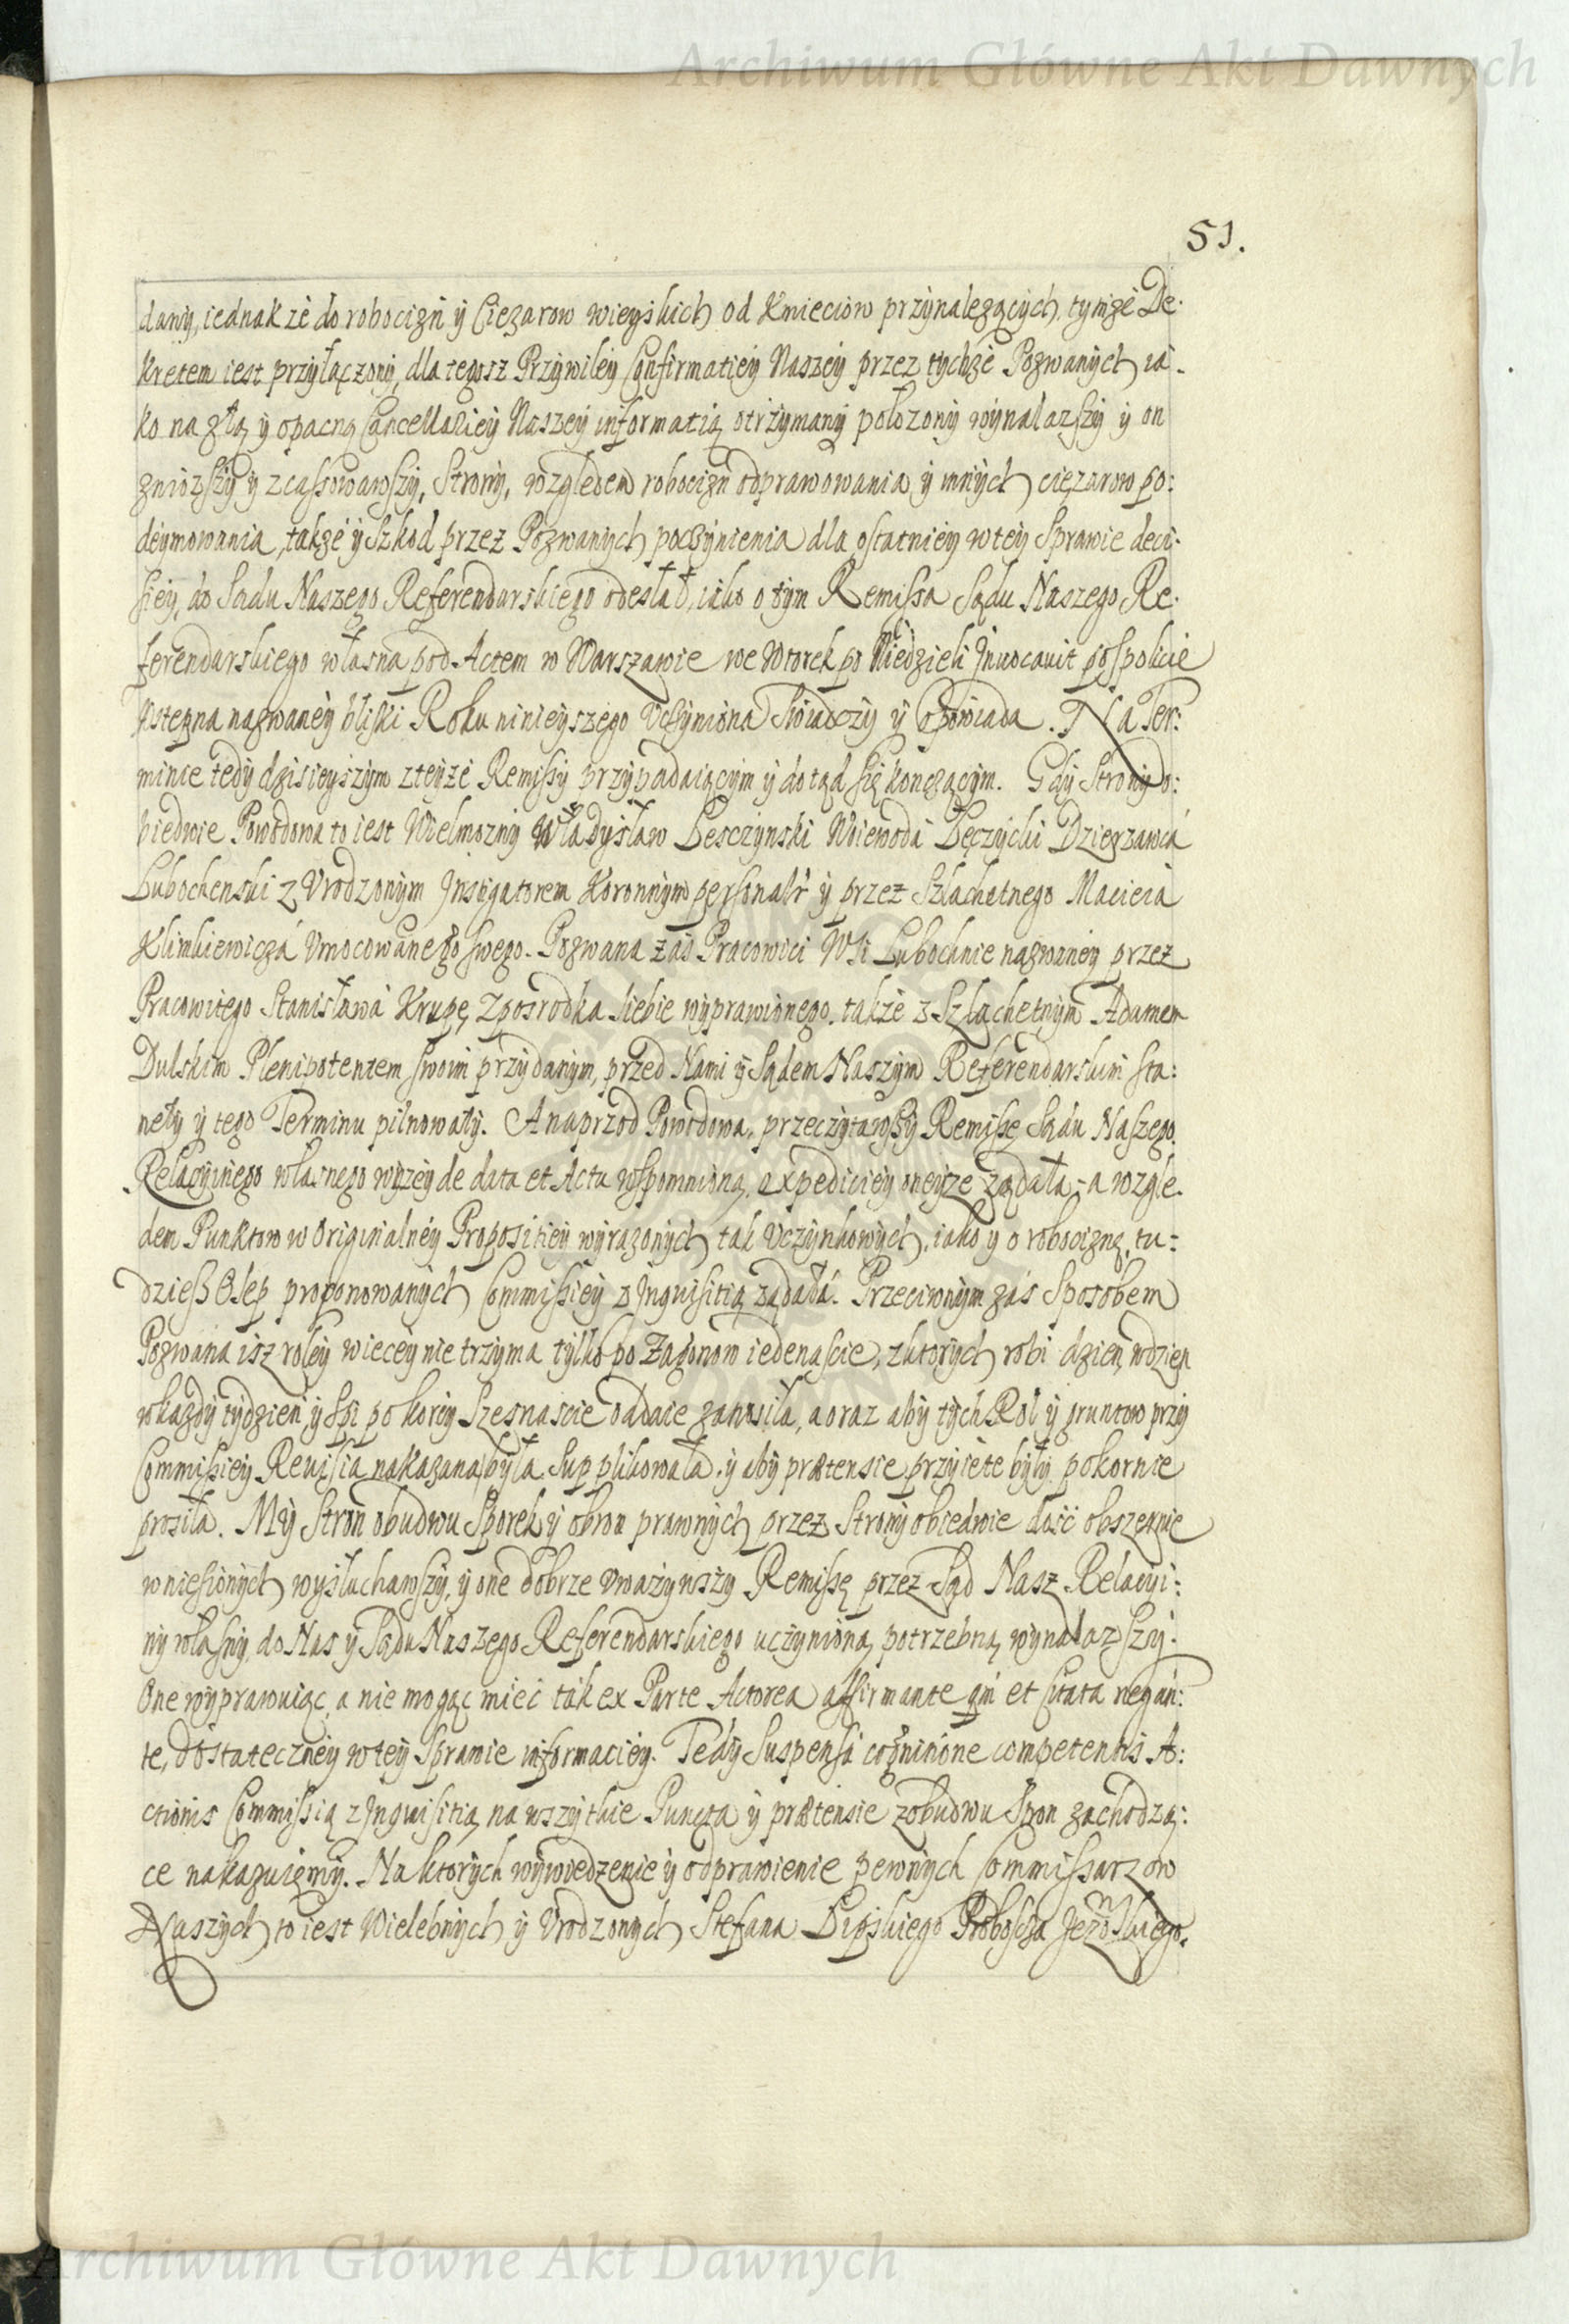 Archiwum Główne Akt Dawnych
51.
dany, iednakże do robocizń y Ciężarow wieyskich od Kmieciow przynalezących, tymże De-
kretem iest przyłączony, dla tegosz Przywiley Confirmatiey Naszey przez tychże Pozwanych ia-
ko na złą y opaczną Cancellariey Naszey informatią otrzymany położony wynalazszy y on
zniozszy y zcassowawszy, Strony, względem robocizn odprawowania y innych ciężarow po:
deymowania, także y Szkod przez Pozwanych poczynienia dla ostatniey w tey Sprawie deci-
siey, do Sądu Naszego Referendarskiego odesłał, iako o tym Remissa Sądu Naszego Re-
ferendarskiego własna pod Actem w Warszawie we Wtorek po Niedzieli Invocavit pospolicie
Wstępna nazwaney bliski Roku ninieyszego Uczyniona Swiadczy y Opowiada. Na Ter:
minie tedy dzisieyszym z teyże Remissy przypadaiącym y dotąd się kończącym. Gdy Strony o:
biedwie Powodowa to iest Wielmozny Władysław Lesczynski Woiewoda Łęczycki Dzierzawca
Lubochenski z Urodzonym Instigatorem Koronnym personalr y przez Szlachetnego Macieia
Klimkiewicza Umocowanego swego. Pozwana zaś Pracowici Wsi Lubochnie nazwaney przez
Pracowitego Stanisława Krupę, z posrodka siebie wyprawionego, także z Szlachetnym Adamem
Dulskim Plenipotentem swoim przydanym, przed Nami y Sądem Naszym Referendarskim sta:
neły y tego Terminu pilnowały. A naprzod Powodowa, przeczytawszy Remissę Sądu Naszego
Relacyinego własnego wyżey de data et Actu wspomnioną, expediciey oneyze ządała, a wzglę-
dem Punktow w Originalney Propositiey wyrazonych tak Uczynkowych, iako y o robociznę, tu-
dziesz Osep proponowanych Commissiey z Inquisitią ządała. Przeciwnym zaś Sposobem
Pozwana isz roley wiecey nie trzyma tylko po Zagonow iedenascie, z ktorych robi dzien w dzien
w kazdy tydzien y Ospi po korcy Szesnascie oddaie zanosiła, a oraz aby tych Rol y gruntow przy
Commissiey Revisia nakazana była Supplikowała, y aby prætensie przyięte były pokornie
prosiła. My Stron obudwu Sporek y obron prawnych przez Strony obiedwie dość obszernie
wniesionych wysłuchawszy, y one dobrze uważywszy Remissę przez Sąd Nasz Relacyi:
ny własny, do Nas y Sądu Naszego Referendarskiego uczynioną, potrzebną wynalazszy.
One wyprawuiąc, a nie mogąc mieć tak ex Parte Actorea affirmante qm et Citata negan:
te, dostateczney w tey Sprawie informaciey. Tedy Suspensa cognitione competentis A:
ctionis Commissią z Inquisitią na wszytkie Puncta y prætensie z obudwu Stron zachodzą:
ce nakazuiemy. Na ktorych wywiedzenie y odprawienie pewnych Commissarzow
Naszych to iest Wielebnych y Urodzonych Stefana Lipskiego Proboscza
Archiwum Główne Akt Dawnych